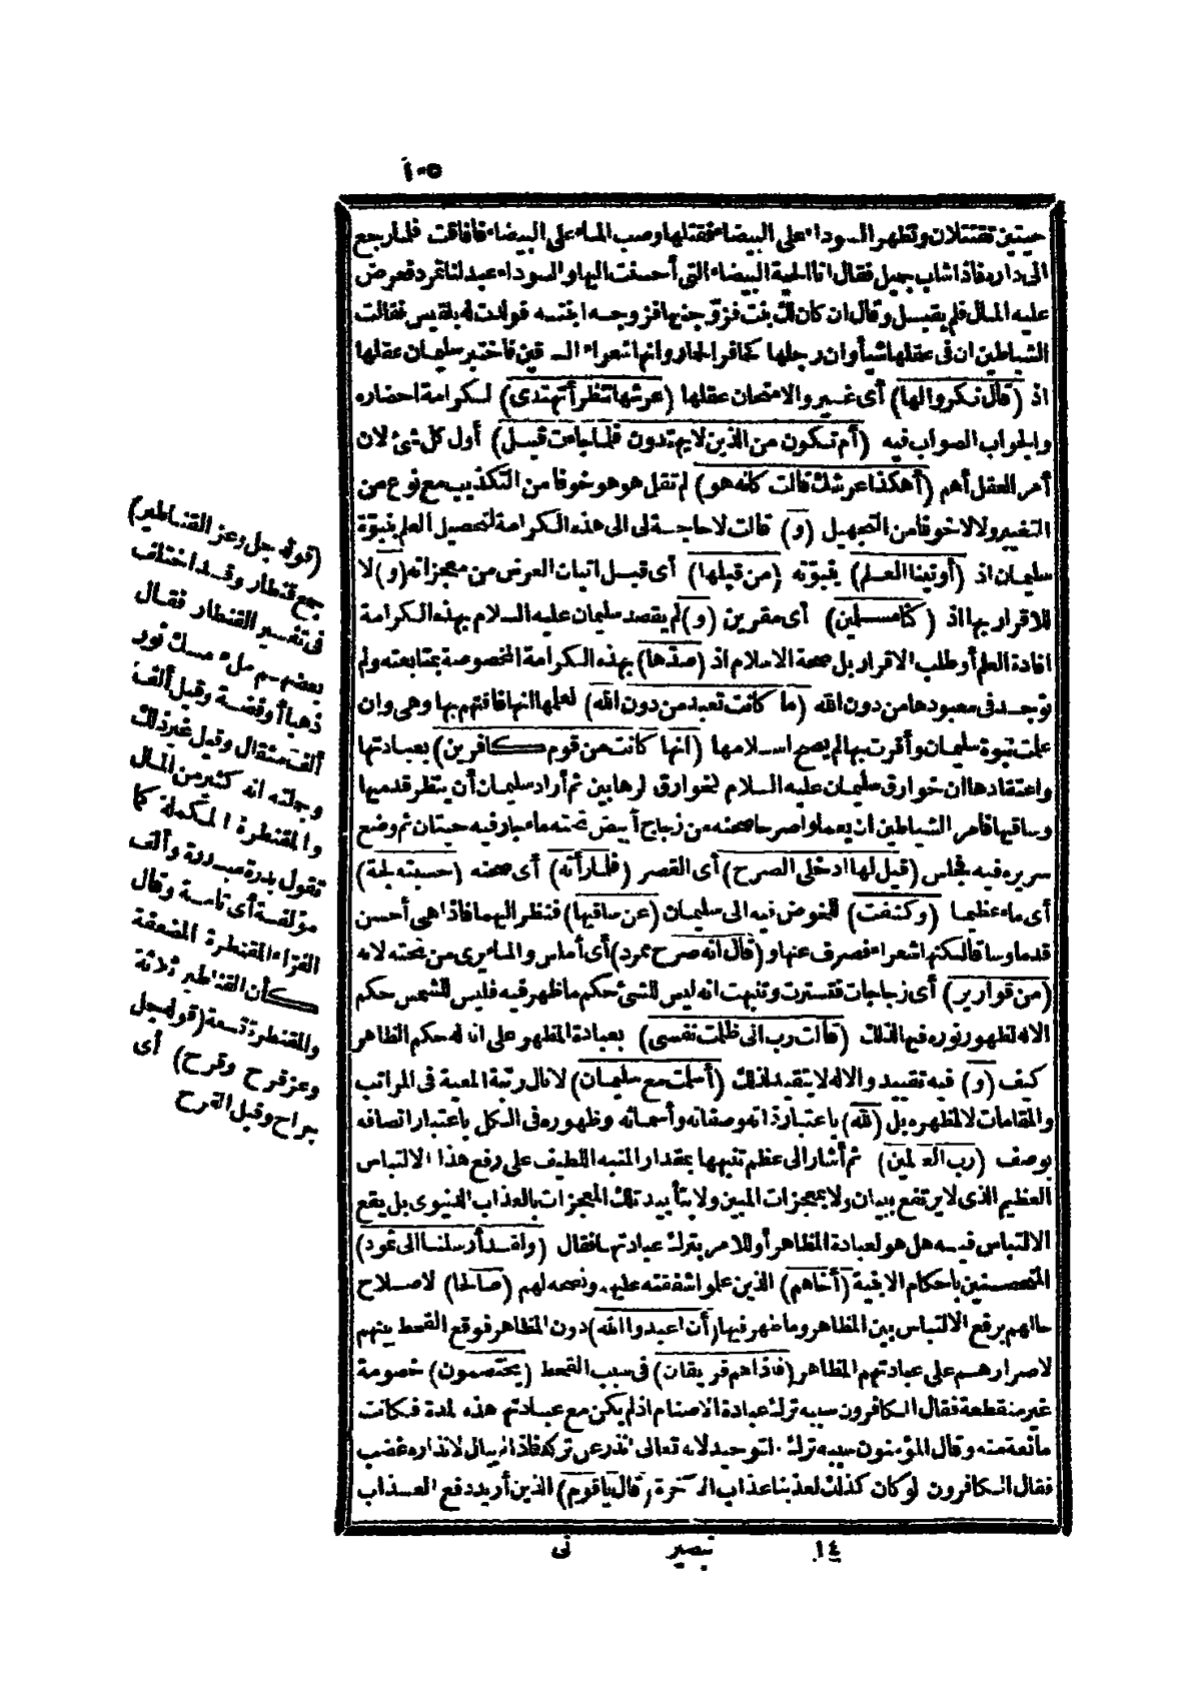 ١٠٥
حيتين تقتتلان وتظهر السوداء على البيضاء فقتلها وصب الماء على البيضاء فأفاقت فلما رجع
الى داره فاذا شاب جميل فقال انا الحية البيضاء التى أحسنت اليها والسوداء عبد لنا تمرد فعرض
عليه المال فلم يقبل وقال ان كان لك بنت فزوجنيها فزوجه ابنته فولدت له بلقيس فقالت
الشياطين ان فى عقلها شيأ وان رجلها كحافر الحمار وانها شعراء الساقين فاختبر سليمان عقلها
اذ (قال نكروا لها) أى غيروا لامتحان عقلها (عرشها ننظر أتهتدى) لكرامة احضاره
والجواب الصواب فيه (أم تكون من الذين لا يهتدون فلما جاءت قيل) أول كل شئ لان
أمر العقل أهم (أهكذا عرشك قالت كأنه هو) لم تقل هو هو خوفا من التكذيب مع نوع من
التغيير ولا لا خوفا من التجهيل (و) قالت لا حاجة لى الى هذه الكرامة لتحصيل العلم بنبوّة
سليمان اذ (أوتينا العلم) بنبوّته (من قبلها) أى قبل اتيان العرش من معجزاته (و) لا
للاقرار بها اذ (كنا مسلمين) أى مقرين (و) لم يقصد سليمان عليه السلام بهذه الكرامة
افادة العلم أو طلب الاقرار بل صحة الاسلام اذ (صدّها) بهذه الكرامة المخصوصة بمتابعته ولم
توجد فى معبودها من دون الله (ما كانت تعبد من دون الله) لعلمها انها فاقتهم بها وهى وان
علمت نبوة سليمان وأقرت بها لم يصح اسلامها (انها كانت من قوم كافرين) بعبادتها
واعتقادها ان خوارق سليمان عليه السلام لخوارق لرهابين ثم أراد سليمان أن ينظر قدميها
وساقيها فأمر الشياطين ان يعملوا صرحا صحنه من زجاج أبيض تحته ماء جار فيه حيتان ثم وضع
سريره فيه فجلس (قيل لها ادخلى الصرح) أى القصر (فلما رأته) أى صحنه (حسبته لجة)
أى ماء عظيما (وكشفت) للخوض فيه الى سليمان (عن ساقيها) فنظر اليهما فاذا هى أحسن
قدما وساقا لكنها شعراء فصرف عنها و (قال انه صرح ممرد) أى أملس والماء يرى من تحته لانه
(من قوارير) أى زجاجات فتسترت وتنبهت انه ليس للشئ حكم ما ظهر فيه فليس للشمس حكم
الاله لظهور نوره فيها لذلك (قالت رب انى ظلمت نفسى) بعبادة المظهر على انا له حكم الظاهر
كيف (و) فيه تقييد والاله لا يتقيد لذلك (أسلمت مع سليمان) لانال رتبة المعية فى المراتب
والمقامات لا لمظهره بل (لله) باعتبار ذاته وصفاته وأسمائه وظهوره فى الكل باعتبار اتصافه
بوصف (رب العالمين) ثم أشار الى عظم تنبهها بمقدار المنبه اللطيف على رفع هذا الالتباس
العظيم الذى لا يرتفع ببيان ولا بمعجزات المبين ولا بتأييد تلك المعجزات بالعذاب الدنيوى بل يقع
الالتباس فيه هل هو لعبادة المظاهر أو للامر بترك عبادتها فقال (ولقد أرسلنا الى ثمود)
المتحصنين باحكام الابنية (أخاهم) الذين علموا شفقته عليهم ونصحه لهم (صالحا) لاصلاح
حالهم برفع الالتباس بين المظاهر وما ظهر فيها (أن اعبدوا الله) دون المظاهر فوقع القحط بينهم
لاصرارهم على عبادتهم المظاهر (فاذا هم فريقان) فى سبب القحط (يختصمون) خصومة
غير منقطعة فقال الكافرون سببه ترك عبادة الاصنام اذ لم يكن مع عبادتهم هذه المدة فكانت
مانعة منه وقال المؤمنون سببه ترك التوحيد لانه تعالى أنذر عن تركه فاذا لم يبال لانذاره غضب
فقال الكافرون لو كان كذلك لعذبنا عذاب الآخرة (قال يا قوم) الذين أريد دفع العذاب
١٤ تبصير نى
(قوله جل وعز القناطير)
جمع قنطار وقد اختلف
فى تفسير القنطار فقال
بعضهم ملء مسك ثور
ذهبا أو فضة وقيل ألف
ألف مثقال وقيل غير ذلك
وجملته انه كثير من المال
والمقنطرة المكملة كما
تقول بدرة مبدرة وألف
مؤلفة أى تامة وقال
الفرّاء المقنطرة المضعفة
كأن القناطير ثلاثة
والمقنطرة تسعة (قوله جل
وعز قرح وقرح) أى
جراح وقيل القرح